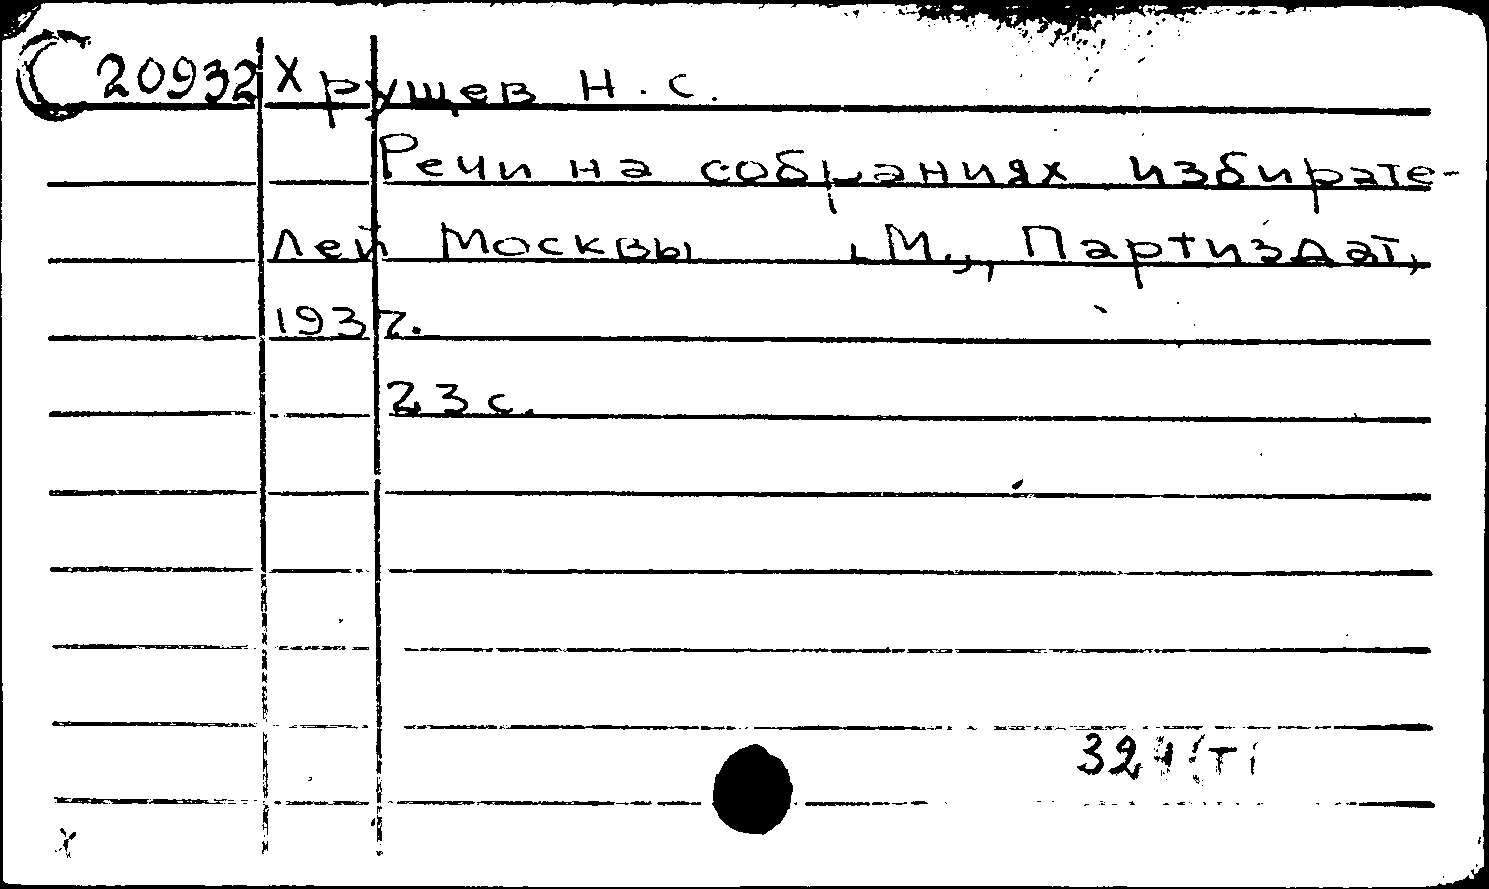 С 20932 Хрущев Н.С.
Речи на собраниях избирате-
лей Москвы , М., Партиздат,
1937.
23 с.
324(Т
х